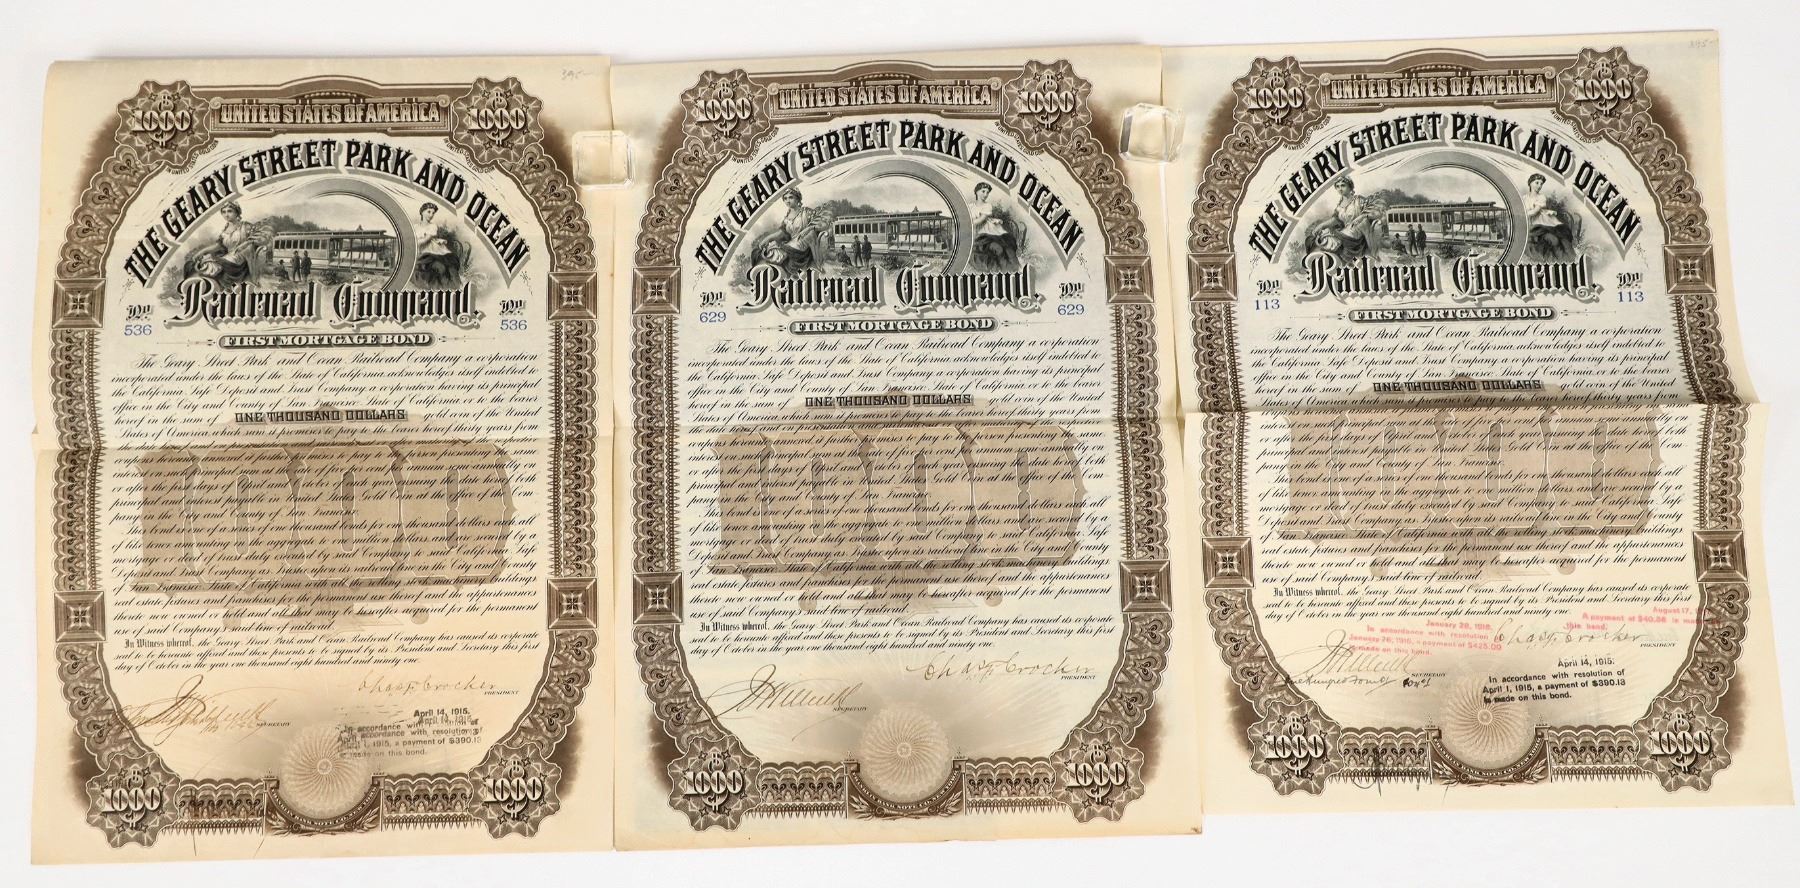 395-
UNITED STATES OF AMERICA
$1000 $1000
THE GEARY STREET PARK AND OCEAN
Railroad Company.
No No
536 536
FIRST MORTGAGE BOND
The Geary Street Park and Ocean Railroad Company a corporation
incorporated under the laws of the State of California, acknowledges itself indebted to
the California Safe Deposit and Trust Company a corporation having its principal
office in the City and County of San Francisco, State of California or to the bearer
hereof in the sum of ONE THOUSAND DOLLARS gold coin of the United
States of America, which sum is promises to pay to the bearer hereof, thirty years from
coupons hereunto annexed, it further promises to pay to the person presenting the same
interest on such principal sum at the rate of five per cent per annum semi-annually on
or after the first days of April and October of each year ensuing the date hereof both
principal and interest payable in United States Gold Coin at the office of the Com-
pany in the City and County of San Francisco.
This bond is one of a series of one thousand bonds for one thousand dollars each all
of like tenor amounting in the aggregate to one million dollars, and are secured by a
mortgage or deed of trust duly executed by said Company to said California Safe
Deposit and Trust Company as Trustee upon its railroad line in the City and County
of San Francisco State of California with all the rolling stock machinery buildings
real estate fixtures and franchises for the permanent use thereof and the appurtenances
thereto now owned or held and all that may be hereafter acquired for the permanent
use of said Company's said line of railroad.
In Witness whereof, the Geary Street Park and Ocean Railroad Company has caused its corporate
seal to be hereunto affixed and these presents to be signed by its President and Secretary this first
day of October in the year one thousand eight hundred and ninety one.
Chas. F. Crocker
PRESIDENT
SECRETARY
April 14, 1915.
In accordance with resolution of
April 1, 1915, a payment of $390.13
is made on this bond.
$1000 $1000
UNITED STATES OF AMERICA
$1000 $1000
THE GEARY STREET PARK AND OCEAN
Railroad Company.
No No
629 629
FIRST MORTGAGE BOND
The Geary Street Park and Ocean Railroad Company a corporation
incorporated under the laws of the State of California, acknowledges itself indebted to
the California Safe Deposit and Trust Company a corporation having its principal
office in the City and County of San Francisco, State of California or to the bearer
hereof in the sum of ONE THOUSAND DOLLARS gold coin of the United
States of America, which sum is promises to pay to the bearer hereof, thirty years from
the date hereof and on presentation and surrender of the
coupons hereunto annexed, it further promises to pay to the person presenting the same
interest on such principal sum at the rate of five per cent per annum semi-annually on
or after the first days of April and October of each year ensuing the date hereof both
principal and interest payable in United States Gold Coin at the office of the Com-
pany in the City and County of San Francisco.
This bond is one of a series of one thousand bonds for one thousand dollars each all
of like tenor amounting in the aggregate to one million dollars, and are secured by a
mortgage or deed of trust duly executed by said Company to said California Safe
Deposit and Trust Company as Trustee upon its railroad line in the City and County
of San Francisco State of California with all the rolling stock machinery buildings
real estate fixtures and franchises for the permanent use thereof and the appurtenances
thereto now owned or held and all that may be hereafter acquired for the permanent
use of said Company's said line of railroad.
In Witness whereof, the Geary Street Park and Ocean Railroad Company has caused its corporate
seal to be hereunto affixed and these presents to be signed by its President and Secretary this first
day of October in the year one thousand eight hundred and ninety one.
Chas. F. Crocker
PRESIDENT
SECRETARY
$1000 $1000
395-
UNITED STATES OF AMERICA
$1000 $1000
THE GEARY STREET PARK AND OCEAN
Railroad Company.
No No
113 113
FIRST MORTGAGE BOND
The Geary Street Park and Ocean Railroad Company a corporation
incorporated under the laws of the State of California, acknowledges itself indebted to
the California Safe Deposit and Trust Company a corporation having its principal
office in the City and County of San Francisco, State of California or to the bearer
hereof in the sum of ONE THOUSAND DOLLARS gold coin of the United
States of America, which sum is promises to pay to the bearer hereof, thirty years from
interest on such principal sum at the rate of five per cent per annum semi-annually on
or after the first days of April and October of each year ensuing the date hereof both
principal and interest payable in United States Gold Coin at the office of the Com-
pany in the City and County of San Francisco.
This bond is one of a series of one thousand bonds for one thousand dollars each all
of like tenor amounting in the aggregate to one million dollars, and are secured by a
mortgage or deed of trust duly executed by said Company to said California Safe
Deposit and Trust Company as Trustee upon its railroad line in the City and County
of San Francisco State of California with all the rolling stock machinery buildings
real estate fixtures and franchises for the permanent use thereof and the appurtenances
thereto now owned or held and all that may be hereafter acquired for the permanent
use of said Company's said line of railroad.
In Witness whereof, the Geary Street Park and Ocean Railroad Company has caused its corporate
seal to be hereunto affixed and these presents to be signed by its President and Secretary this first
day of October in the year one thousand eight hundred and ninety one.
August 17,
A payment of $40.56 is made
this bond.
January 29, 1916,
In accordance with resolution
January 26, 1916, a payment of $425.00
is made on this bond.
Chas. F. Crocker
PRESIDENT
SECRETARY
April 14, 1915.
In accordance with resolution of
April 1, 1915, a payment of $390.13
is made on this bond.
$1000 $1000